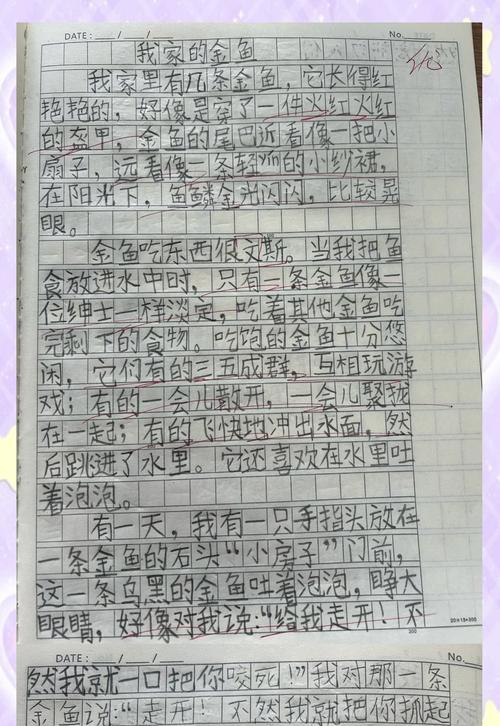 DATE: / / No.
优
我家的金鱼
我家里有几条金鱼，它长得红
艳艳的，好像是穿了一件火红火红
的盔甲，金鱼的尾巴近看像一把小
扇子，远看像一条轻yín的小纱裙，
在阳光下，鱼鳞金光闪闪，比较晃
眼。
金鱼吃东西很文斯。当我把鱼
食放进水中时，只有一条金鱼像一
位绅士一样淡定，吃着其他金鱼吃
完剩下的食物。吃饱的金鱼十分悠
闲，它们有的三五成群，互相玩游
戏；有的一会儿散开，一会儿聚拢
在一起；有的飞快地冲出水面，然
后跳进了水里。它还喜欢在水里吐
着泡泡。
有一天，我有一只手指头放在
一条金鱼的石头“小房子”门前，
这一条乌黑的金鱼吐着泡泡，睁大
眼睛，好像对我说：“给我走开！不
20×15=300
300
DATE: / / No.
然我就一口把你咬死！”我对那一条
金鱼说：“走开！不然我就把你抓起